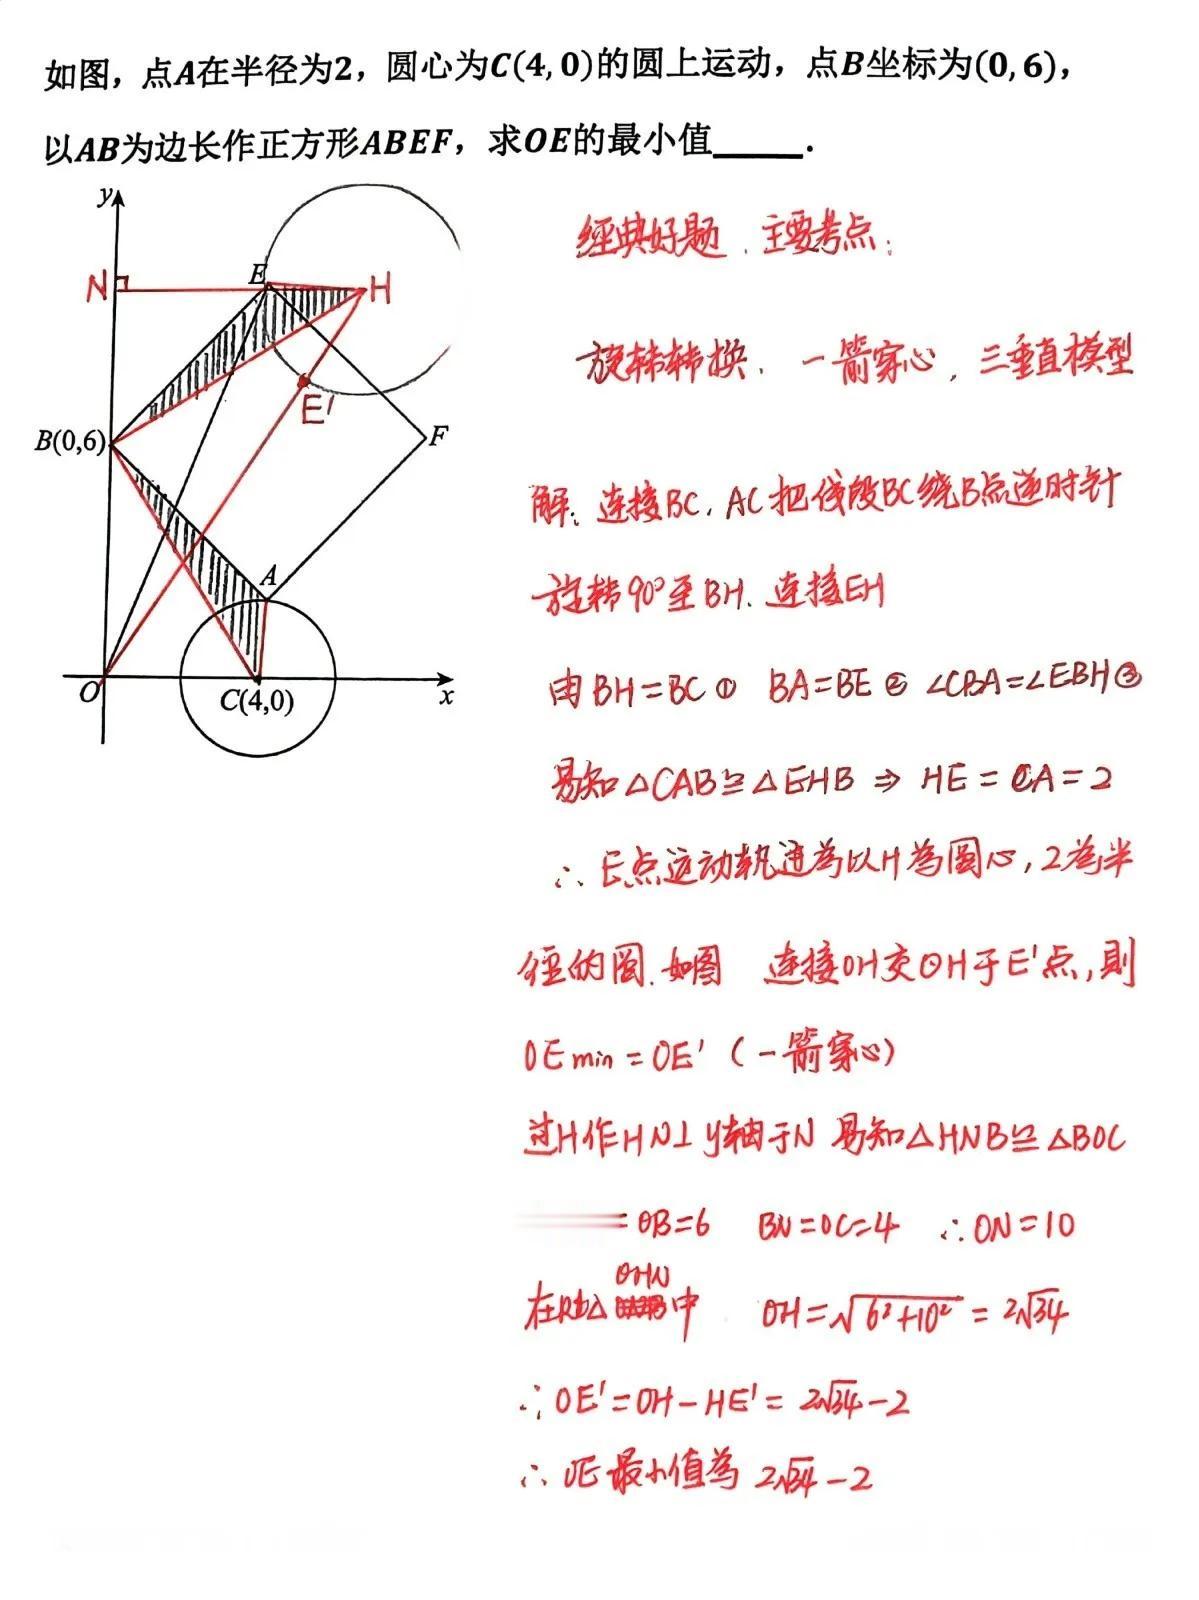 如图，点A在半径为2，圆心为C(4,0)的圆上运动，点B坐标为(0,6)，
以AB为边长作正方形ABEF，求OE的最小值_____.
y
經典好题．主要考点：
N
E
H
旋转转换．一箭穿心，三垂直模型
E'
B(0,6)
F
解：连接BC，AC把线段BC绕B点逆时针
A
旋转90°至BH．连接EH
O
C(4,0)
x
由BH=BC① BA=BE② ∠CBA=∠EBH③
易知△CAB≌△EHB ⇒ HE=CA=2
∴E点运动轨迹為以H為圆心，2為半
径的圆．如图 连接OH交⊙H于E'点，則
OEmin=OE'（一箭穿心）
过H作HN⊥y轴于N 易知△HNB≌△BOC
=OB=6 BN=OC=4 ∴ON=10
在Rt△OHN中 OH=√6²+10²=2√34
∴OE'=OH-HE'=2√34-2
∴OE最小值為2√34-2